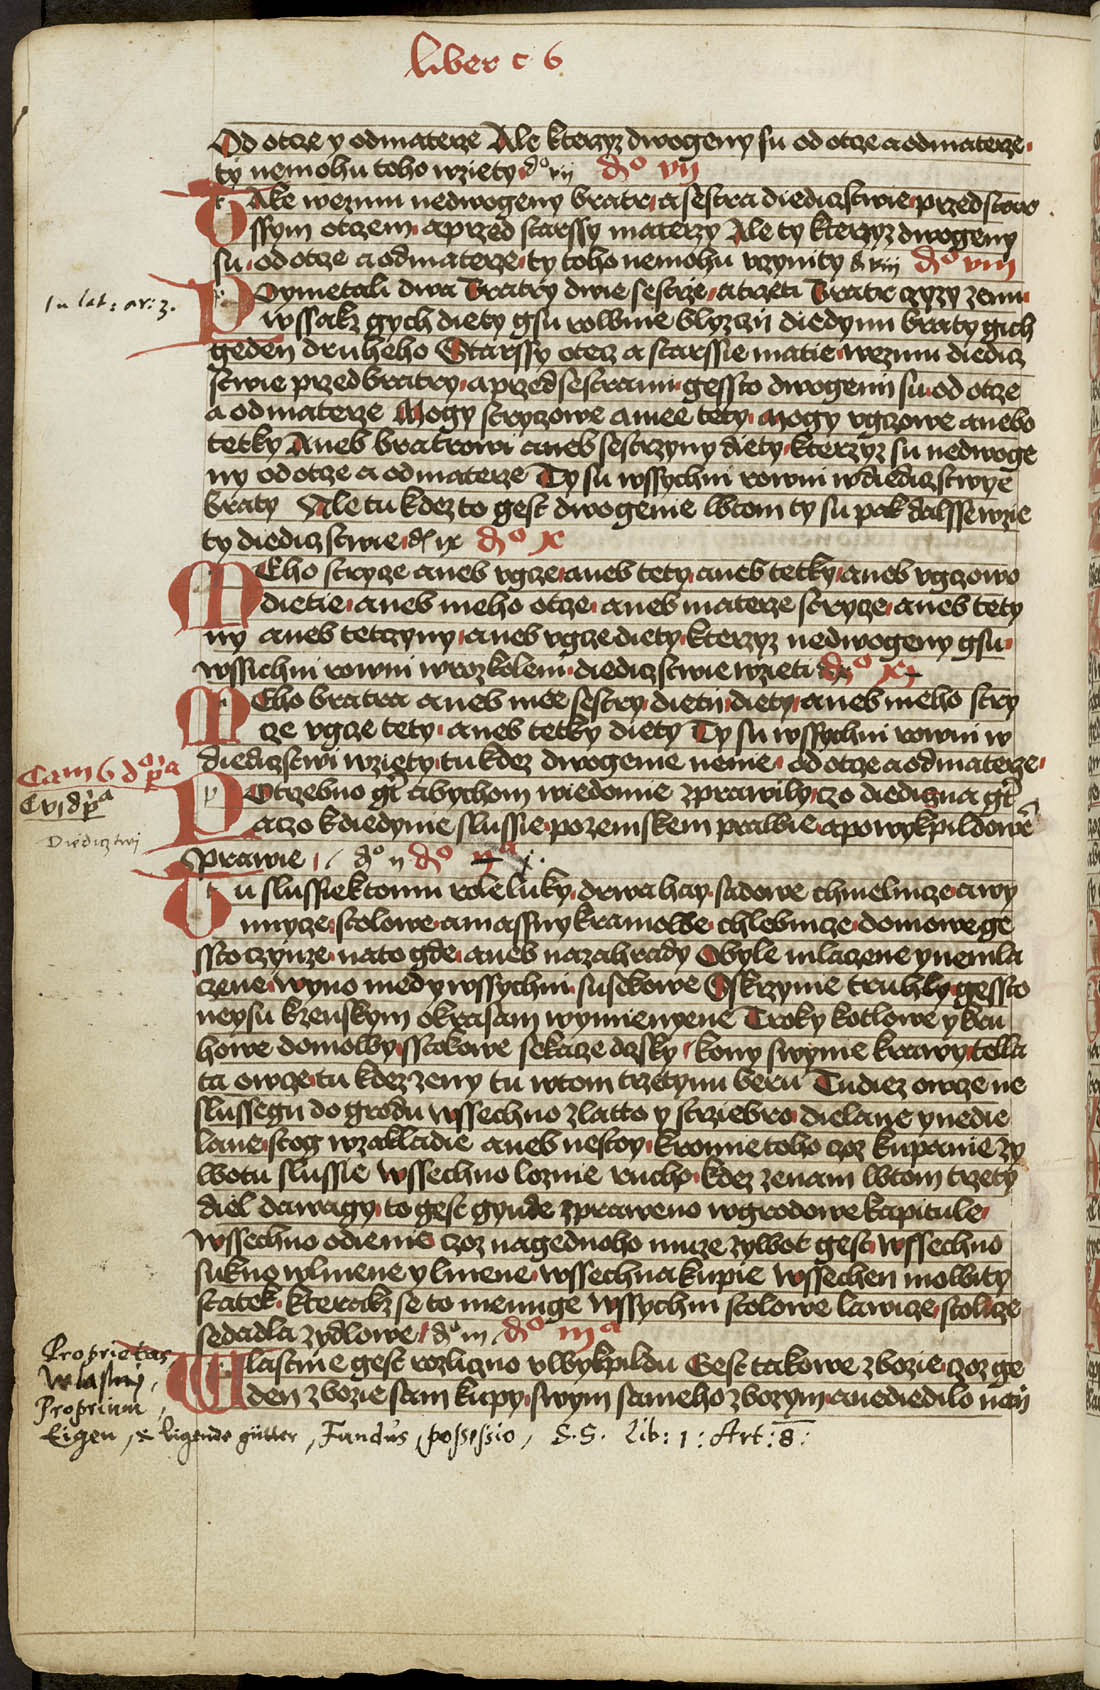 liber c 6
Od otcze y odmaterze Ale kterzyz dwogeny su od otcze a odmaterze
ty nemohu toho wziety d° vij d° vij
Take wezmu nedwogeny bratr a sestra diediczstwie przed star
ssym otczem aprzed starssy materzy Ale ty kterzyz dwogeny
su od otcze a odmaterze ty toho nemohu vczynity d viij d° viij
In lat: ar: 3.
Poymetali dwa bratry dwie sestrze a trzeti bratr czyzy zenu
wssak gych diety gsu rowbnie blyzczij diedynu braty gich
geden druheho Starssy otecz a starssie matie wezmu diedicz
stwie przed bratry aprzed sestrami gessto dwogenij su od otcze
a odmaterze Mogy stryczowe a mee tety Mogy vgczowe anebo
tetky Aneb bratrowi aneb sestrzyny diety kterzyz su nedwoge
ny od otcze a odmaterze Ty su wssychni rowni wdiediczstwye
braty Ale tu kdez to gest dwogenie wtom ty su pak dalsse wzie
ty diediczstwie d ix d° x
Meho strycze aneb vgcze aneb tety aneb tetky aneb vgczowo
dietie aneb meho otcze aneb materze strycze aneb tety
ny aneb tetczyny aneb vgcze diety kterzyz nedwogeny gsu
wssichni rowni wrozkolem diediczstwie wzieti d° xj
Meho bratra aneb mee sestry dieti diety aneb meho stry
cze vgcze tety aneb tetky diety Ty su wssychni rowni w
diediczstwi wziety tu kdez dwogenie nenie od otcze a odmaterze
Cam 6 d° pa
Cvj d pa
Diedicztwj
Potrzebno gt abychom wiedomie zprawily czo diediczna gt
aczo kdiedynie slussie pozemskem prawie apowykpildowe
prawie d° ij d° ija
Tu slussiektomu role luky drwa hay sadowe chmelnicze a wy
nnycze stolowe a massny kramowe chlebnicze domowe ge
ssto czynze nato gde aneb nazahrady Obyle mlaczene ynemla
czene wyno med y wssychni sudowe Oskrzynie truhly gessto
neysu kzenskym okrasam wymienyene Troky kotlowe y bru
howe domowy sstokowe sekacze dczky kony swynie krawy tella
ta owcze tu kdez zeny tu wtom trzetynu beru Tudiez owcze ne
slussegu do grodu wssechno zlatto y strziebro dielane ynedie
lane stog wzakladie aneb nestoy kromie toho czoz kupanie zy
wotu slussie wssechno loznie rucho kdez zenam wtom trzety
diel dawagy to gest gynde zpraweno wgrodowe kapitule
Wssechno odienie czoz nagednoho muze zywot gest wssechno
sukno wlnene y lnene wssechna kupie wssechen mowity
statek kterakz se to menuge wssychni stolowe lawicze stolicze
sedadla zydlowe d° iij d° iija
Proprietas
Wlastnj,
Proprium,
Eigen, & ligende gütter, Fundus, possessio, S.S. Lib: 1: Art: 8:
Wlastnie gest rozliczno v wykpildu Gest takowe zbozie czoz ge
den zbozie sam kupy swym sameho zbozym anediedilo nan